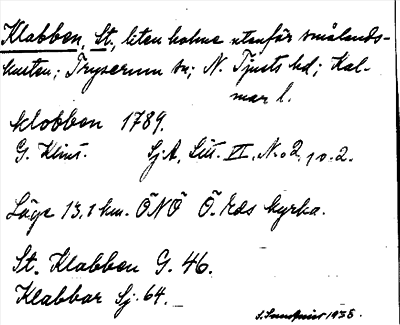 Klabben, St., liten holme utanför smålands-
kusten; Tryserum sn; N. Tjusts hd; Kal-
mar l.
Klobben 1789.
G. Klint. SjA, Litt. VI, N:o 2, 1 o. 2.
Läge 13,1 km. ÖNÖ Ö. Eds kyrka.
St. Klabben G. 46.
Klabbar Sj. 64.
S. Sundqvist 1935.